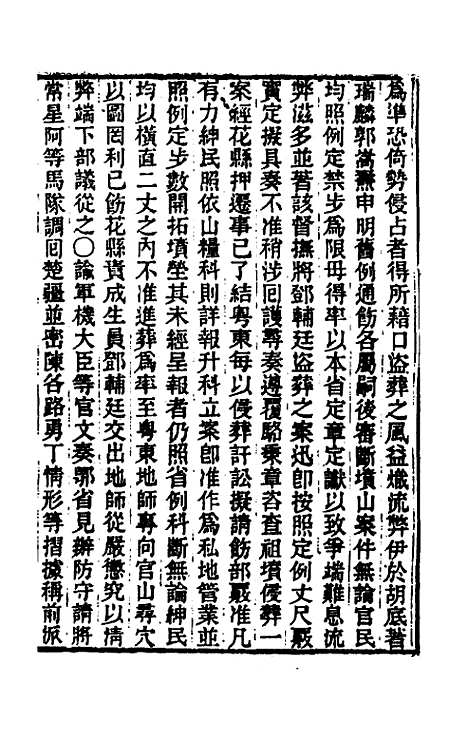 為準恐倚勢侵占者得所藉口盜葬之風益熾流弊伊於胡底著
瑞麟郭嵩燾申明舊例通飭各屬嗣後審斷墳山案件無論官民
均照例定禁步為限毋得率以本省定章定讞以致爭端難息流
弊滋多並著該督撫將鄧輔廷盜葬之案迅即按照定例丈尺嚴
實定擬具奏不准稍涉回護尋奏遵覆駱秉章咨查祖墳侵葬一
案經花縣押遷事已了結粵東每以侵葬訐訟擬請飭部嚴准凡
有力紳民照依山糧科則詳報升科立案即准作為私地管業並
照例定步數開拓墳塋其未經呈報者仍照省例科斷無論紳民
均以橫直二丈之內不准進葬為率至粵東地師專向官山尋穴
以圖罔利已飭花縣責成生員鄧輔廷交出地師從嚴懲究以清
弊端下部議從之〇諭軍機大臣等官文奏鄂省見辦防守請將
常星阿等馬隊調回楚疆並密陳各路勇丁情形等摺據稱前派